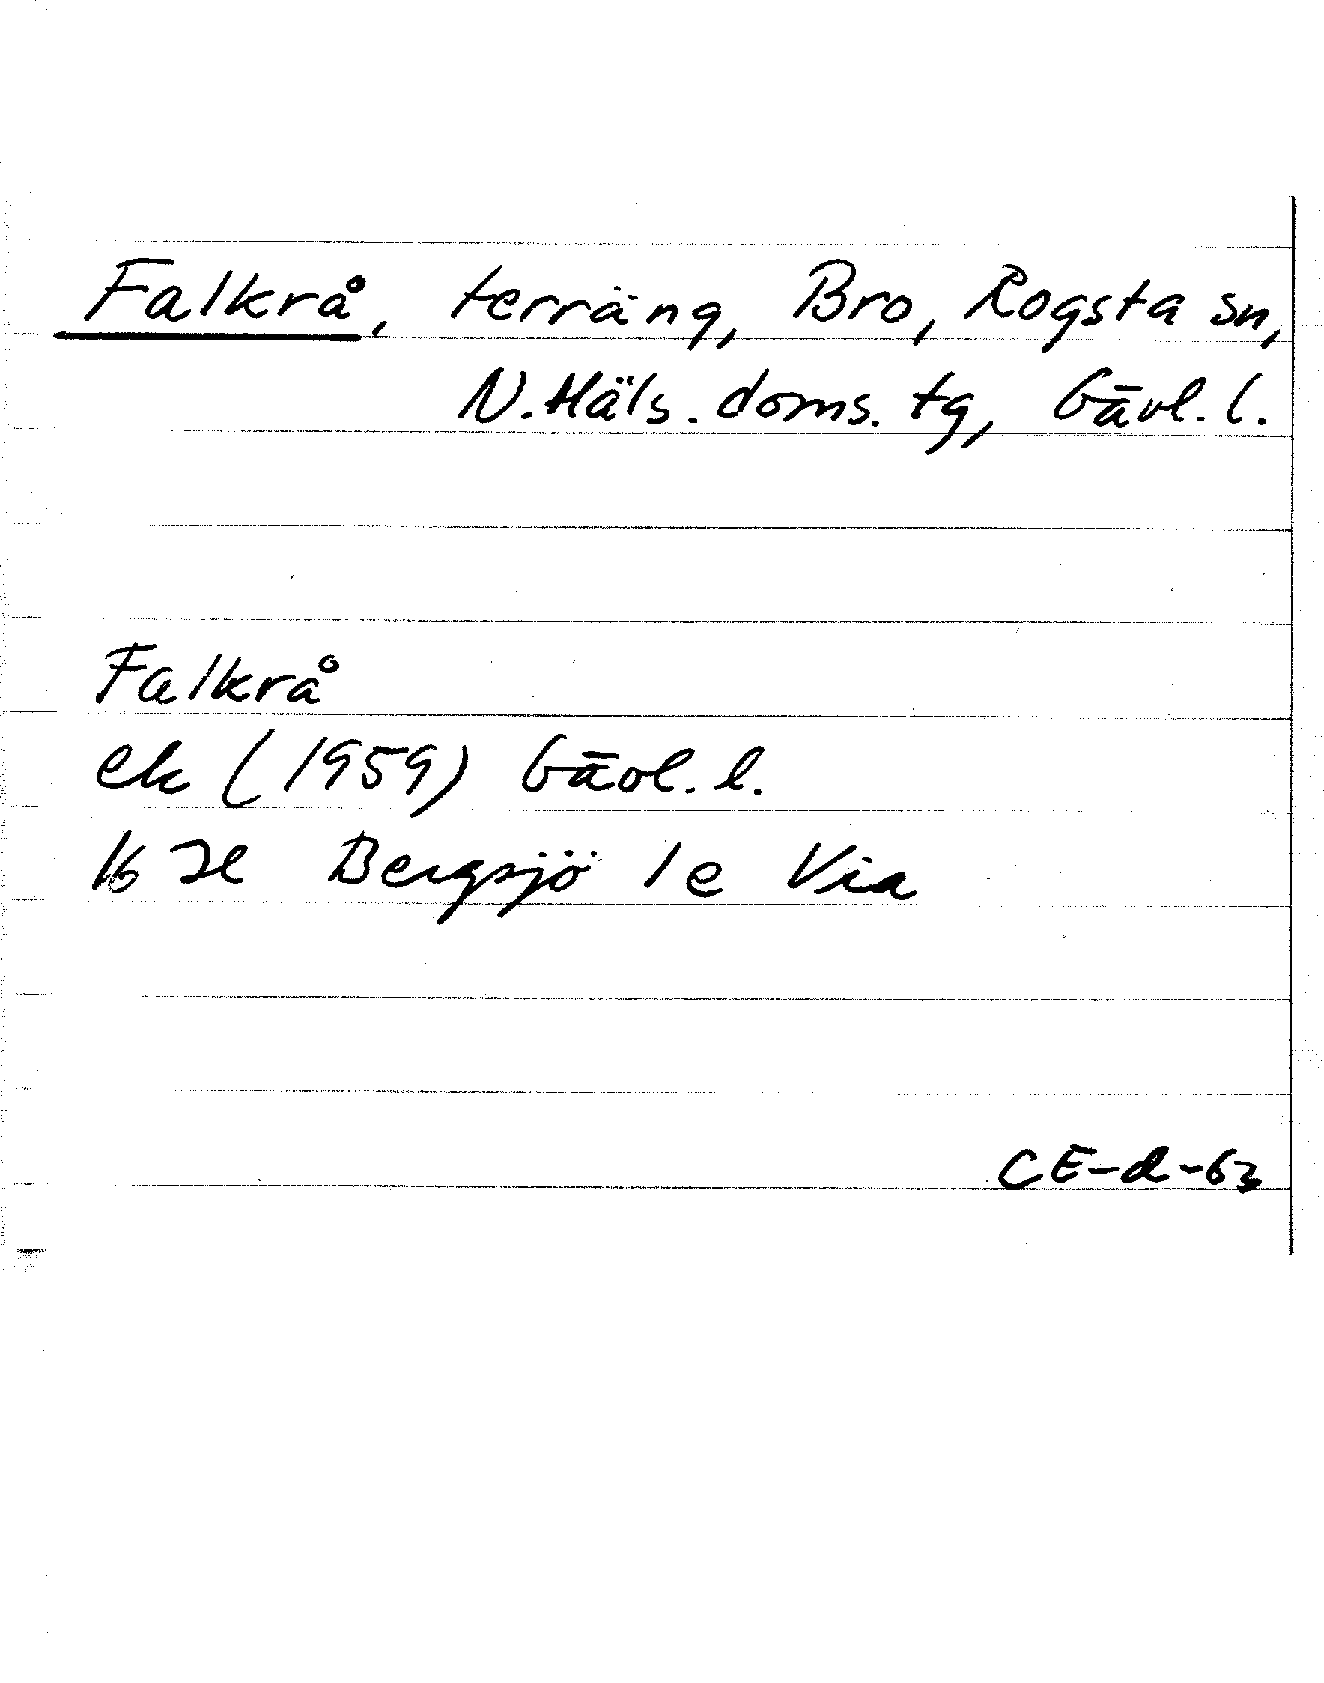 Falkrå, terräng, Bro, Rogsta sn,
N.Häls. doms. tg, Gävl. l.
Falkrå
ek (1959) Gävl. l.
16 H Bergsjö 1e Via
CE-d-63